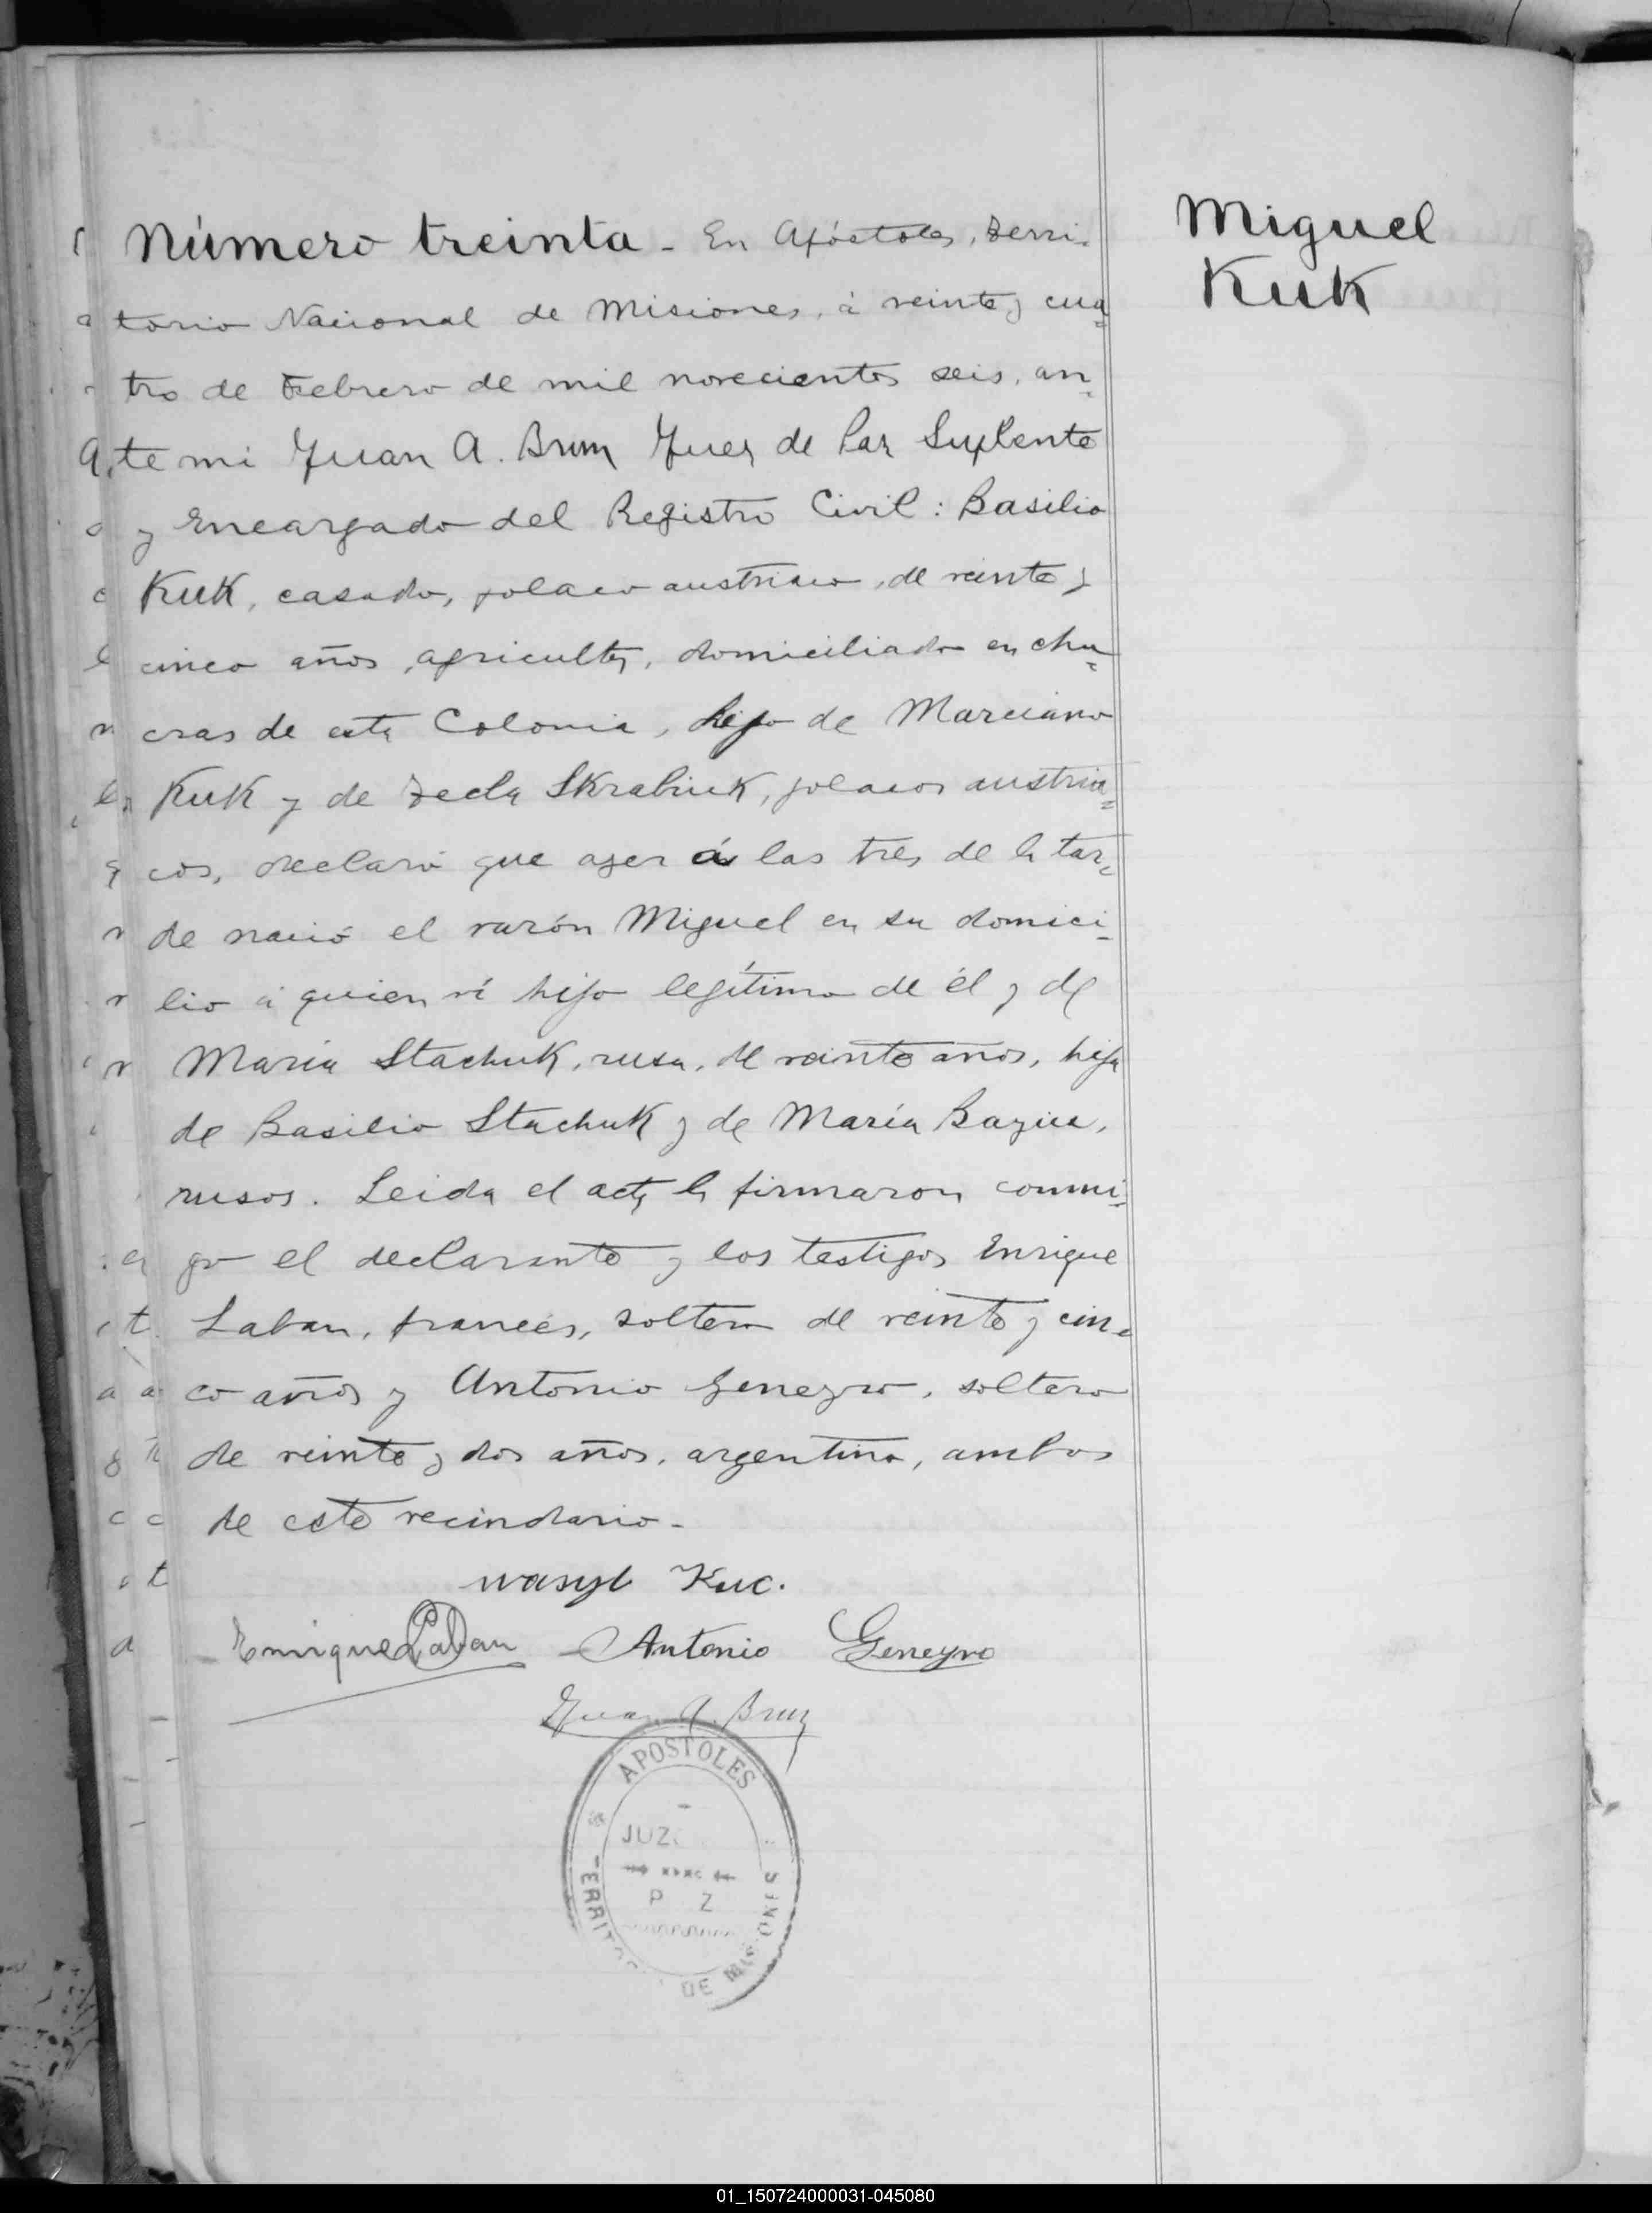 Miguel
Kuk
Número treinta - En Apóstoles, Terri-
torio Nacional de Misiones, á veinte y cua-
tro de Febrero de mil novecientos seis, an-
te mi Juan A. Brun Juez de Paz Suplente
y Encargado del Registro Civil: Basilio
Kuk, casado, polaco austriaco, de veinte y
cinco años, agricultor, domiciliado en cha-
cras de esta Colonia, hijo de Marciano
Kuk y de Tecla Skrabiuk, polacos austria-
cos, declaró que ayer á las tres de la tar-
de nació el varón Miguel en su domici-
lio á quien ví hijo legítimo de él y de
María Stachuk, rusa, de veinte años, hija
de Basilio Stachuk y de María
rusos. Leida el acta la firmaron conmi-
go el declarante y los testigos Enrique
Laban, francés, soltero de veinte y cin-
co años y Antonio Geneyro, soltero
de veinte y dos años, argentino, ambos
de este vecindario -
wasyl Kuc.
Enrique Laban - Antonio Geneyro
Juan A. Brun
APOSTOLES
JUZ
P Z
ERRIT DE MIS ONES
01_150724000031-045080